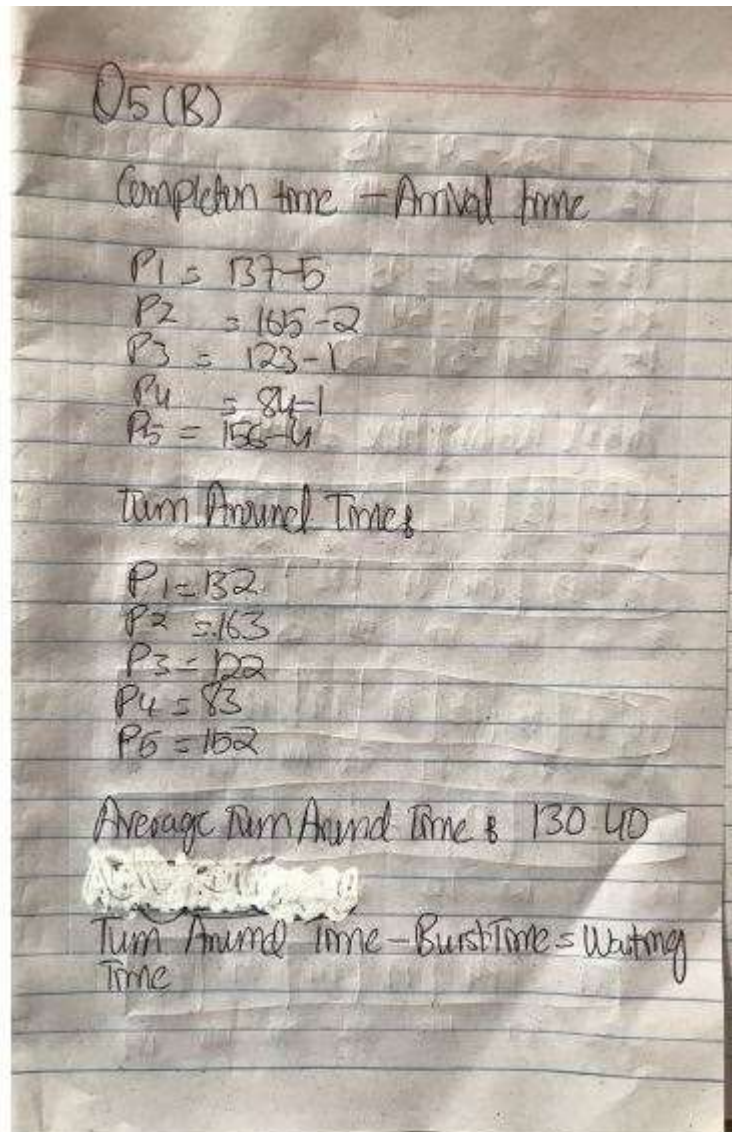 Q5 (B)
Completion time - Arrival time
P1 = 137-5
P2 = 165-2
P3 = 123-1
P4 = 84-1
P5 = 156-4
Turn Around Time:
P1 = 132
P2 = 163
P3 = 122
P4 = 83
P5 = 152
Average Turn Around Time : 130.40
Turn Around Time - Burst Time = Waiting
Time